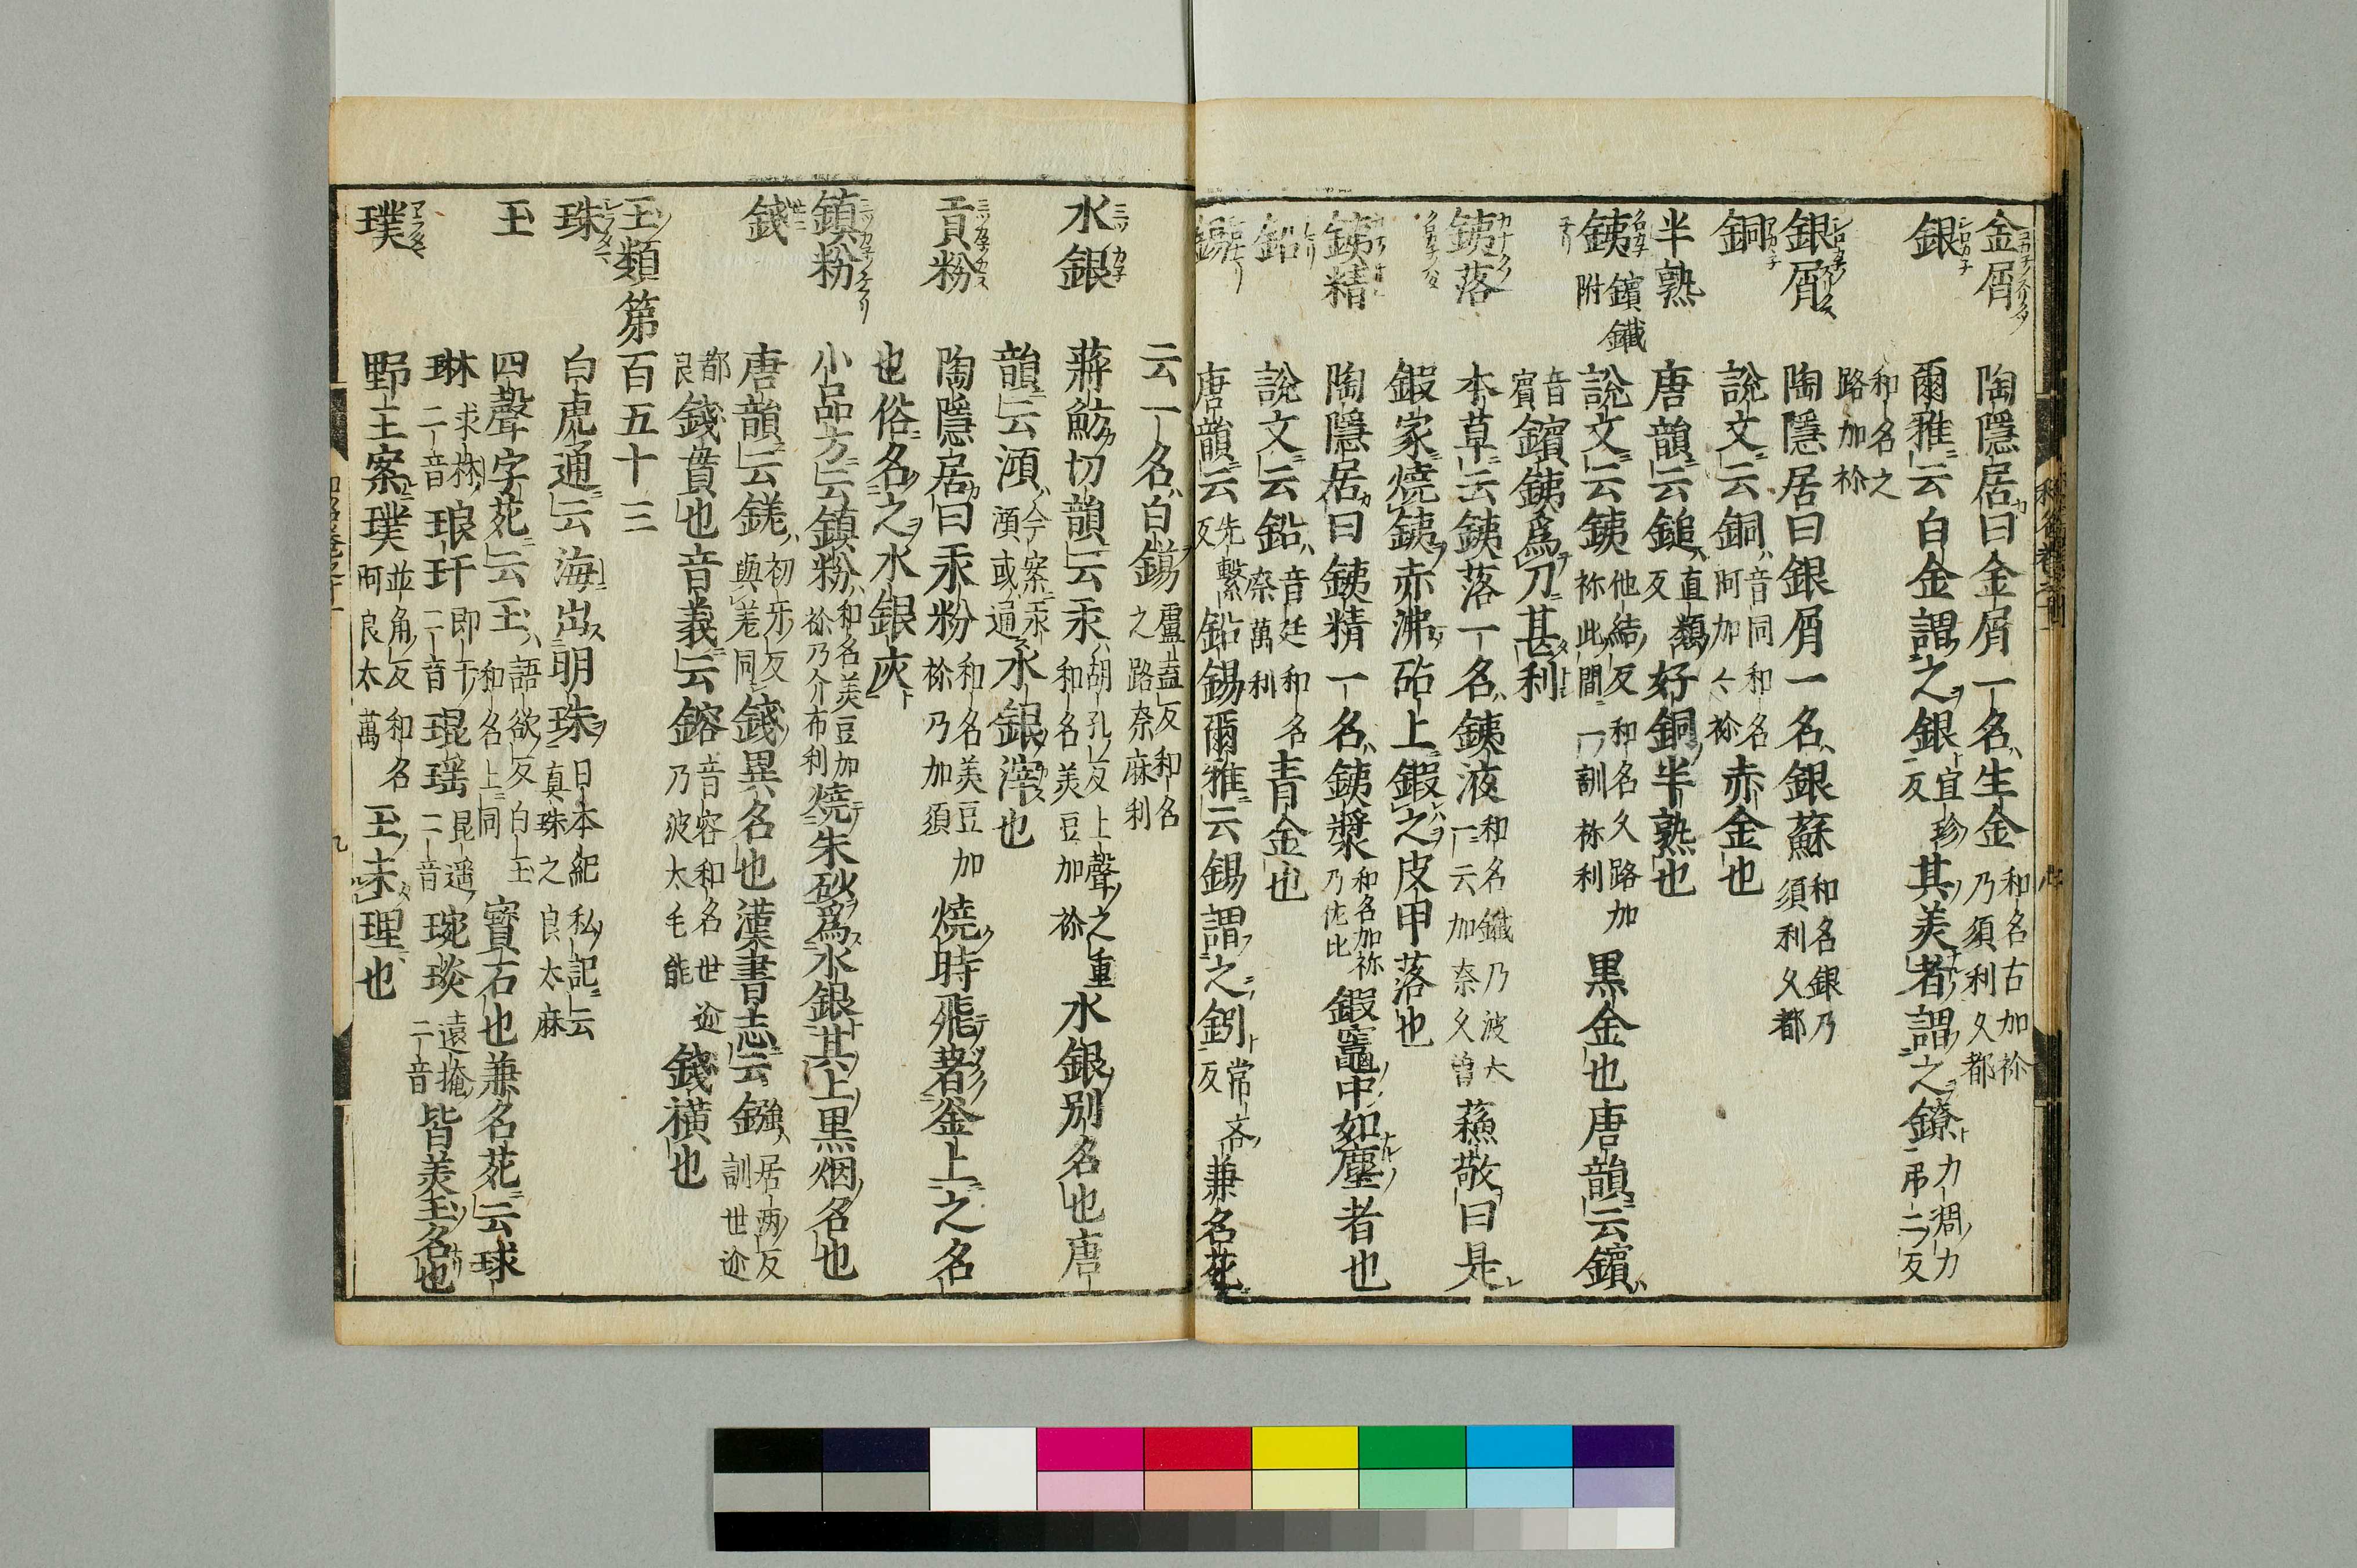 金屑 陶隱居曰金屑一名生金 和名古加祢乃須利久都
銀 爾雅云白金謂之銀 宜珍反 其美者謂之鐐 力凋力弔二反
和名之路加祢
銀屑 陶隱居曰銀屑一名銀蘇 和名銀乃須利久都
銅 說文云銅 音同和名阿加々祢 赤金也
半熟 唐韻云鎚 直類反 好銅半熟也
銕 鑌鐵附 說文云銕 他結反和名久路加祢此間一訓祢利 黒金也唐韻云鑌
音賓 鑌銕爲刀甚利
銕落 本草云銕落一名銕液 和名鐵乃波太一云加奈久曽 蘓敬曰是
鍛家燒銕赤沸砧上鍛之皮甲落也
銕精 陶隱居曰銕精一名銕漿 和名加祢乃佐比 鍜竈中如塵者也
鉛 說文云鉛 音延和名奈萬利 青金也
錫 唐韻云 先擊反 鉛錫爾雅云錫謂之鈏 常吝反 兼名苑
云一名白鑞 盧盍反和名之路奈麻利
水銀 蔣魴切韻云汞 胡孔反上聲之重和名美豆加祢 水銀別名也唐
韻云澒 今案汞澒或通 水銀滓也
貢粉 陶隱居曰汞粉 和名美豆加祢乃加須 燒時飛著釜上之名
也俗名之水銀灰
鎮粉 小品方云鎮粉 和名美豆加祢乃介布利 燒朱砂爲水銀其上黒烟名也
錢 唐韻云鎈 初牙反與差同 錢異名也漢書志云鏹 居兩反訓世迩
都良 錢貫也音義云鎔 音容和名世迩乃波太毛能 錢横也
玉類第百五十三
珠 白虎通云海出明珠 日本紀私記云真珠之良太麻
玉 四聲字苑云玉 語欲反白玉和名上同 寳石也兼名苑云球
琳 求林二音 琅玕 郎干二音 琨瑶 昆遥二音 琬琰 遠掩二音 皆美玉名也
璞 野王案璞 並角反和名阿良太萬 玉未理也